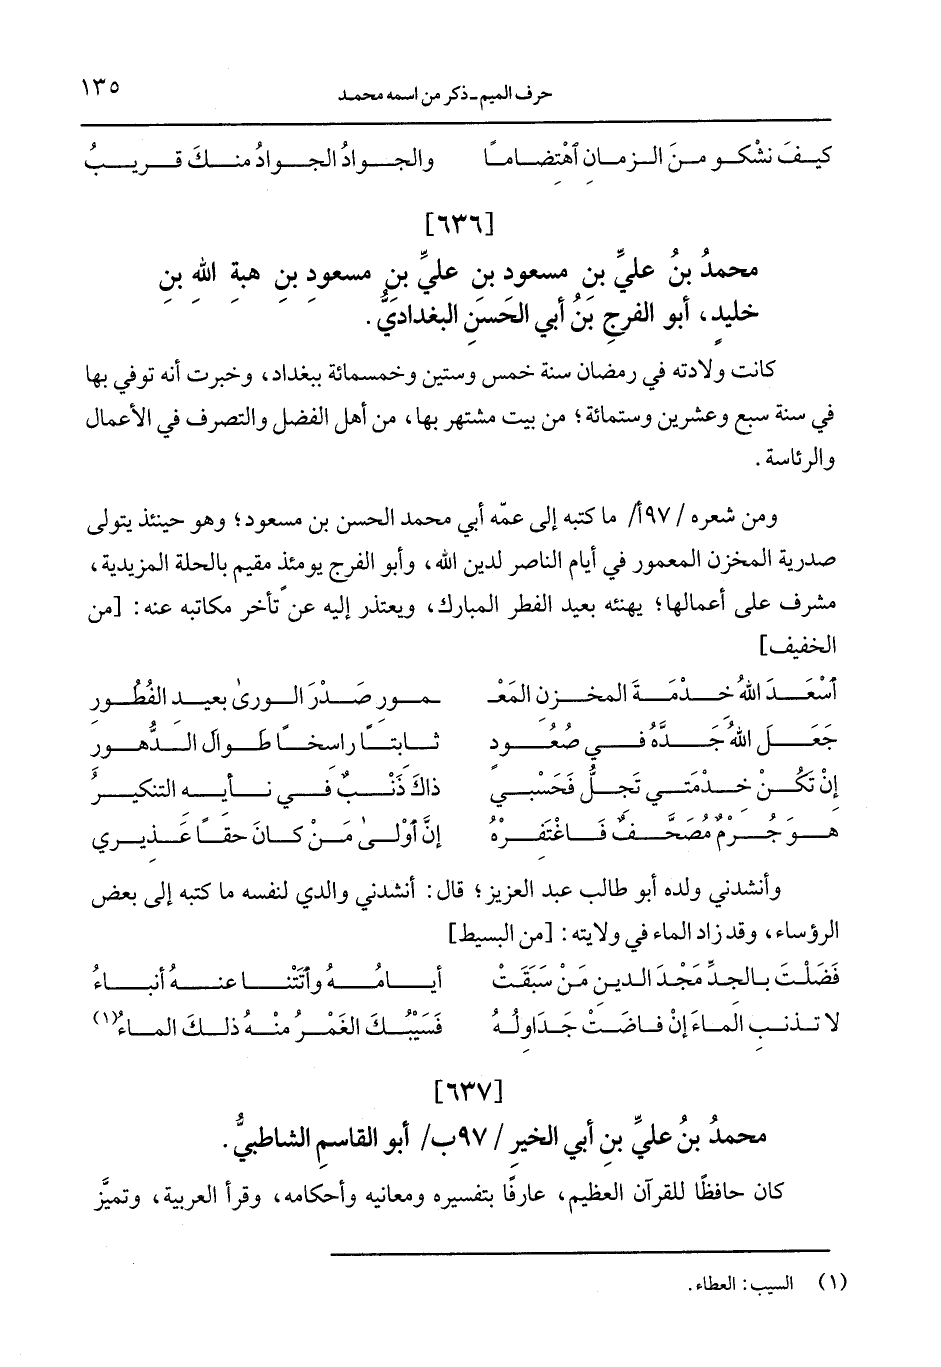 حرف الميم ـ ذكر من اسمه محمد
١٣٥
كيفَ نشْكو منَ الزمان اَهْتِضاماً والجوادُ الجوادُ منكَ قريبُ
[٦٣٦]
محمدُ بنُ عليِّ بنِ مسعودِ بنِ عليِّ بنِ مسعودِ بنِ هبةِ اللهِ بنِ
خليدٍ، أبو الفرجِ بنُ أبي الحَسَنِ البغداديُّ.
كانت ولادته في رمضان سنة خمس وستين وخمسمائة ببغداد، وخبرت أنه توفي بها
في سنة سبع وعشرين وستمائة؛ من بيت مشتهر بها، من أهل الفضل والتصرف في الأعمال
والرئاسة.
ومن شعره /٩٧أ/ ما كتبه إلى عمّه أبي محمد الحسن بن مسعود؛ وهو حينئذ يتولى
صدرية المخزن المعمور في أيام الناصر لدين الله، وأبو الفرج يومئذ مقيم بالحلة المزيدية،
مشرف على أعمالها؛ يهنئه بعيد الفطر المبارك، ويعتذر إليه عن تأخر مكاتبه عنه: [من
الخفيف]
أسْعَدَ اللهُ خدْمَةَ المخزنِ المَعْـ ـمور صَدْرَ الورىٰ بعيد الفُطُور
جَعَلَ اللهُ جَدَّهُ في صُعُودٍ ثابتاً راسخاً طوال الدُّهور
إنْ تكُنْ خدْمَتي تَجلُّ فَحَسْبي ذاكَ ذَنْبٌ في نأيه التنكيرُ
هو جُرْمٌ مُصَحَّفٌ فاغْتَفِرْهُ إنَّ أوْلىٰ مَنْ كانَ حقاً عَذيري
وأنشدني ولده أبو طالب عبد العزيز؛ قال: أنشدني والدي لنفسه ما كتبه إلى بعض
الرؤساء، وقد زاد الماء في ولايته: [من البسيط]
فَضَلْتَ بالجدِّ مَجْدَ الدينِ مَنْ سَبَقَتْ أيامُهُ وأتَتْنا عنهُ أنباءُ
لا تذنب الماءَ إنْ فاضَتْ جَدَاولُهُ فَسَيْبُكَ الغَمْرُ منْهُ ذلكَ الماءُ(١)
[٦٣٧]
محمدُ بنُ عليِّ بنِ أبي الخيرِ /٩٧ب/ أبو القاسمِ الشاطبيُّ.
كان حافظًا للقرآن العظيم، عارفًا بتفسيره ومعانيه وأحكامه، وقرأ العربية، وتميَّز
(١) السيب: العطاء.